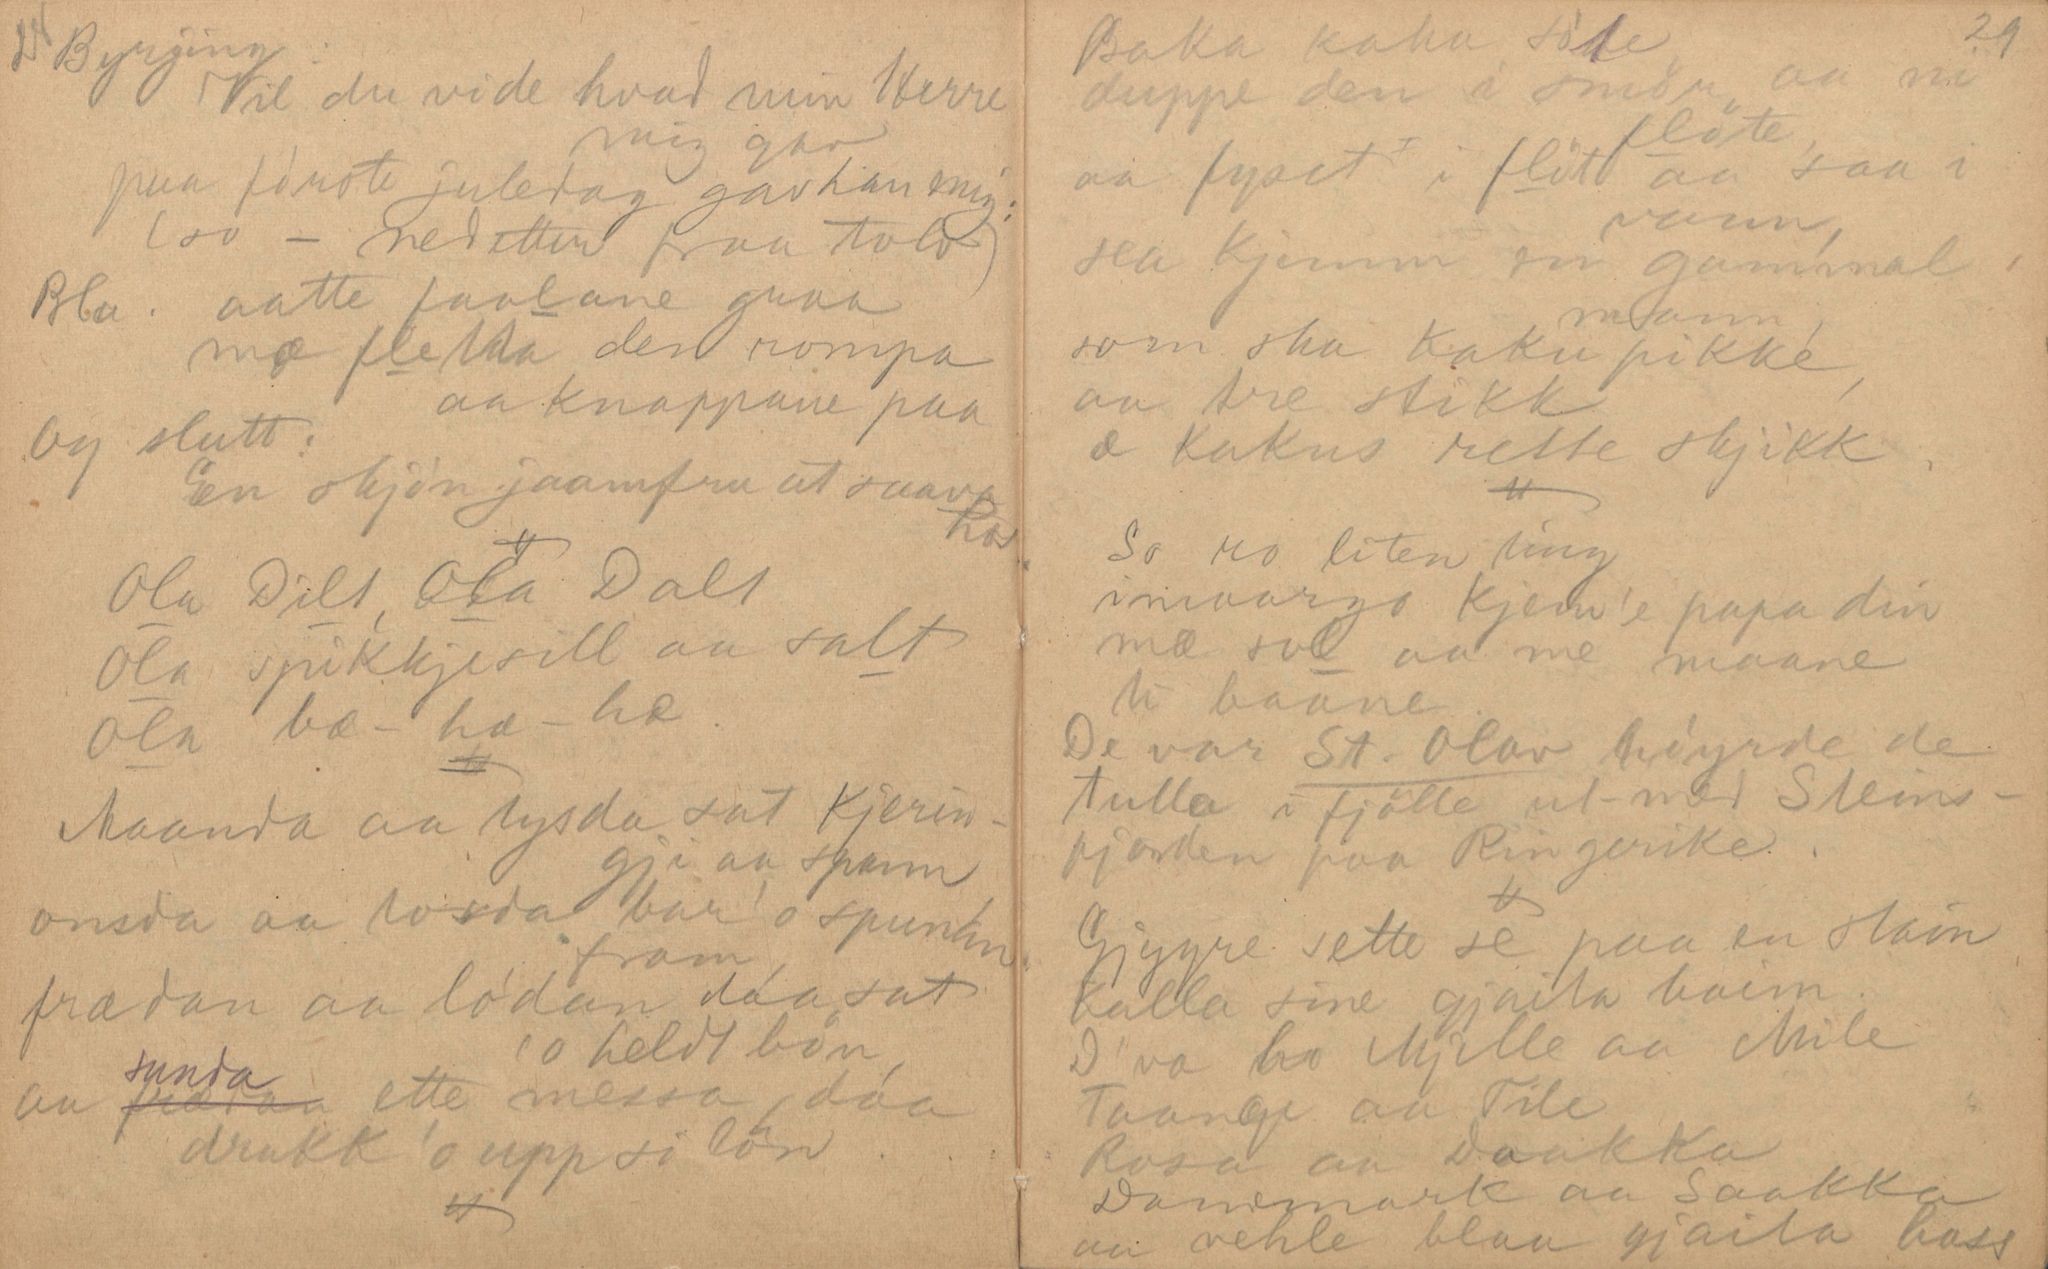 Byrjing:
Vil du vide hvad min Herre
mig gav
paa förste juledag gav han mig:
(so – nedetter fraa tolv)
Bla. aatte faalane graa
mæ flekka den rompa
aa knappane paa
Og slutt:
En skjön jaamfru ut saava
hos
Ola Dilt, Ola Dalt
Ola spikkjesill aa salt
Ola bæ – hæ – hæ.
Maanda aa tysda sat Kjerin-
gji aa spann
onsda aa tosda bar 'o spunan
fram,
frædan aa lödan däa, sat
'o heldt bön,
aa sunda ette messa, däa
drakk 'o upp si lön.
29
Baka kaku söte
duppe den i smör, aa ni
flöte,
aa fysst i flöt aa saa i
vann,
sea kjemm en gammal
mann,
som ska kaku pikke,
aa tre stikk
æ kakus rette skjikk.
So ro liten ting
imaargo kjem'e papa din
mæ sol aa me maane
ti baane.
De var St. Olav höyrde de
tulla i fjölle ut-med Steins-
fjorden paa Ringerike.
Gjygre sette se paa en stain
kalla sine gjaita haim.
D'va bo Mjille aa Mile
Taange aa Tile
Rosa aa Daakka
Danemark aa Saakka
aa vehle blaa gjaita hass